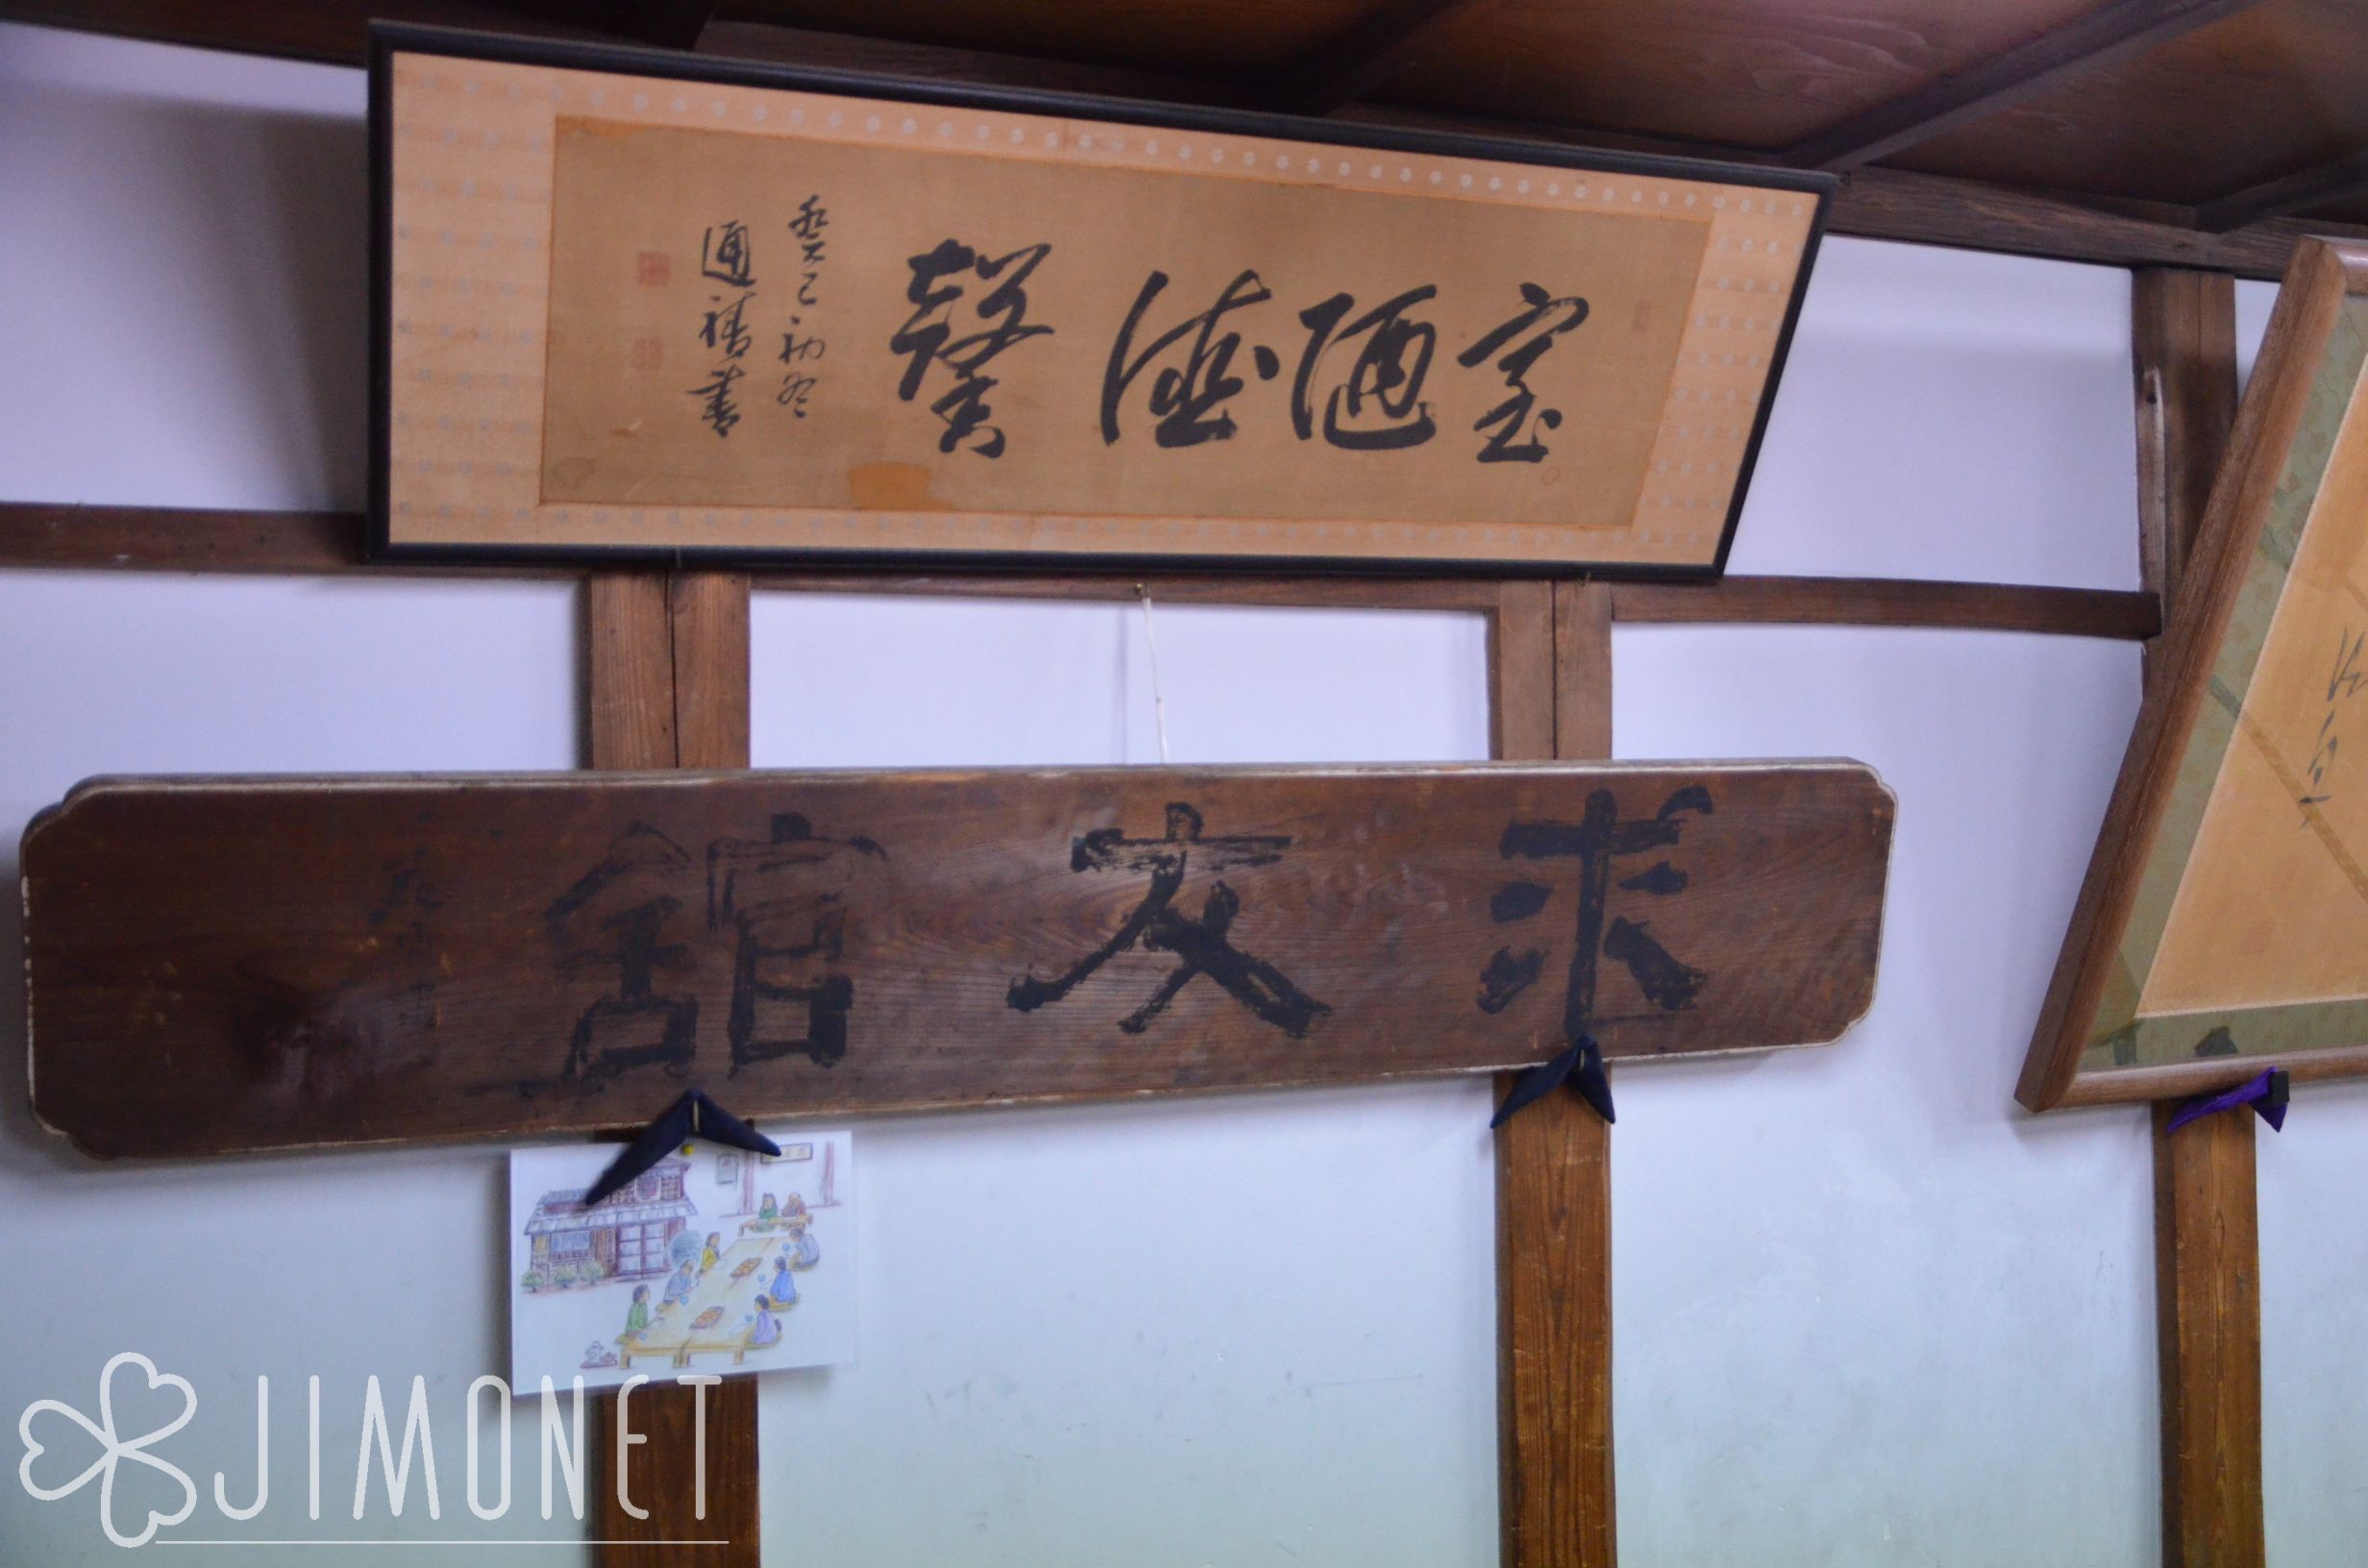 室陋徳馨
癸巳初冬
通禧書
求友舘
JIMONET